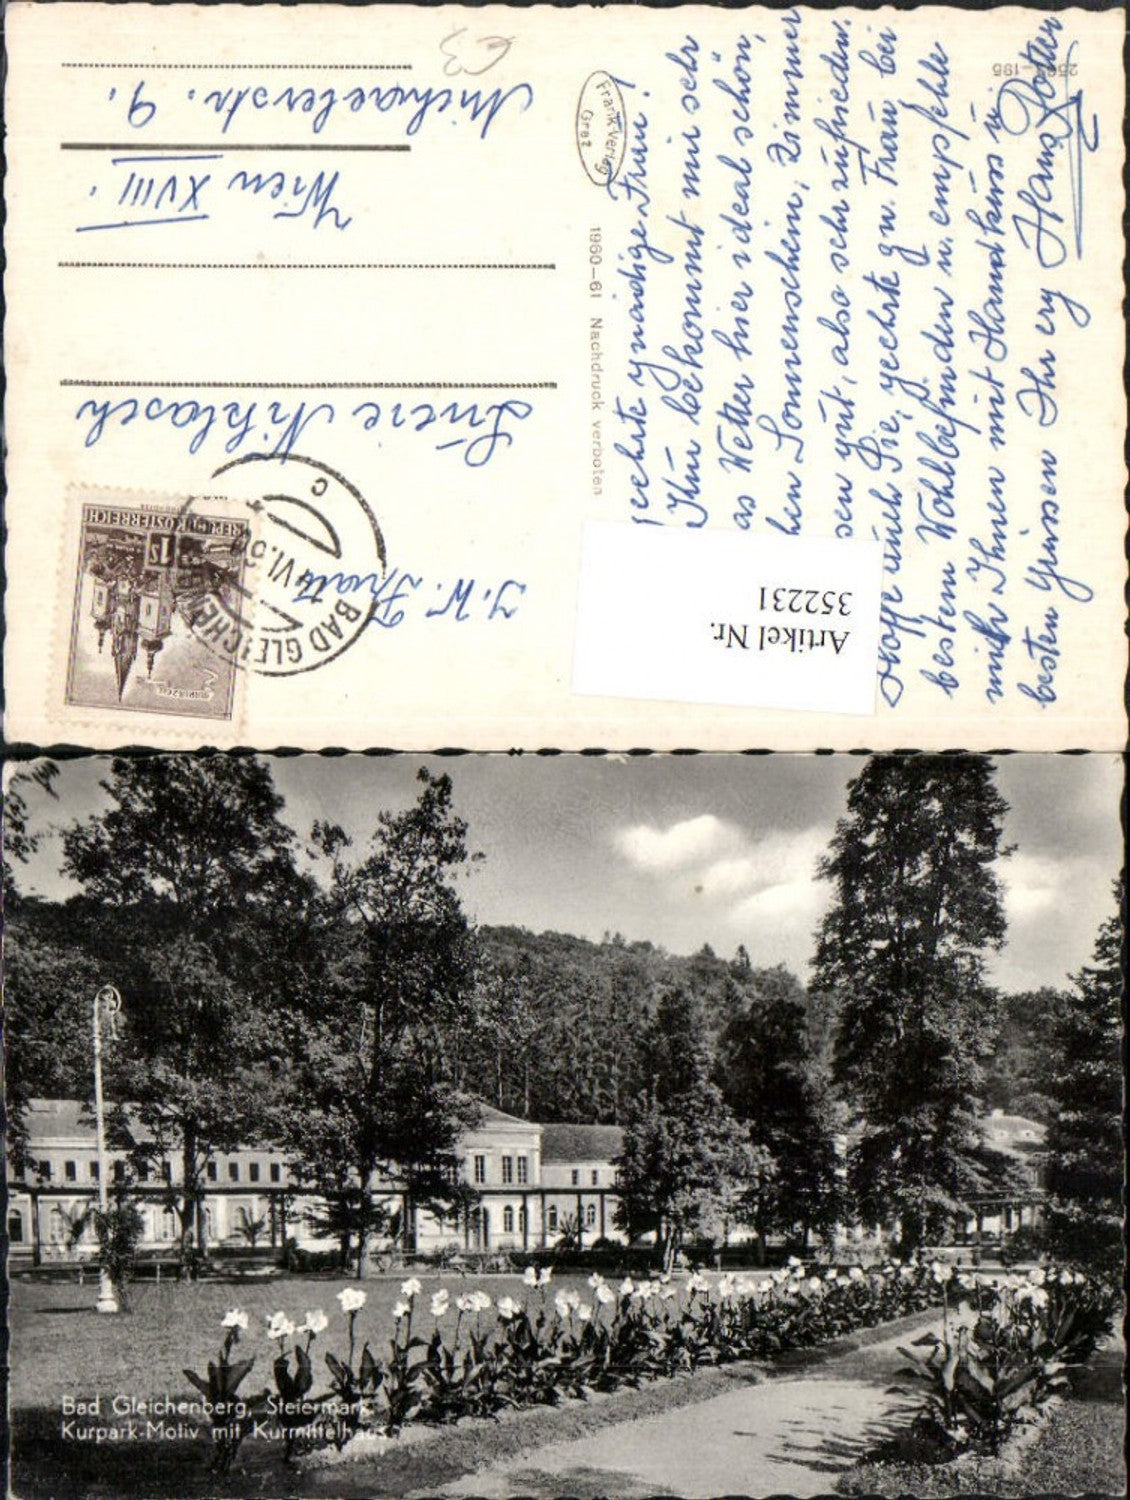 geehrte gnädige Frau!
Kur bekommt mir sehr
as Wetter hier ideal schön,
hen Sonnenschein, Zimmer
sen gut, also sehr zufrieden.
Hoffe auch Sie, geehrte gn. Frau bei
bestem Wohlbefinden u. empfehle
mich Ihnen mit Handküss u.
besten Grüssen Ihr erg Hans
I. W. Frau
Lucie Niklasch
Wien XVIII.
Michaelerstr. 9.
REPUBLIK ÖSTERREICH
1S
MARIAZELL
BAD GLEICHENBERG
VI.
c
Frank Verlag
Graz
1960-61 Nachdruck verboten
Artikel Nr.
352231
€3
Bad Gleichenberg, Steiermark
Kurpark-Motiv mit Kurmittelhaus